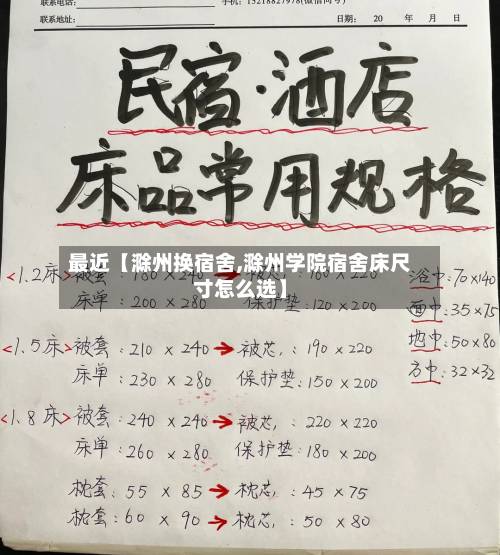 联系电话:
手机: 15218827978(微信同号)
联系地址:
日期: 20 年 月 日
民宿·酒店
床品常用规格
最近【滁州换宿舍,滁州学院宿舍床尺
寸怎么选】
<1.2床>
床单: 200 × 280 保护垫: 120 × 200
<1.5床>被套: 210 × 240 → 被芯: 190 × 220
床单: 230 × 280 保护垫: 150 × 200
<1.8床>被套: 240 × 240 → 被芯: 220 × 220
床单: 260 × 280 保护垫: 180 × 200
枕套: 55 × 85 → 枕芯: 45 × 75
枕套: 60 × 90 → 枕芯: 50 × 80
浴巾: 70×140
面巾: 35×75
地巾: 50×80
方巾: 32×32